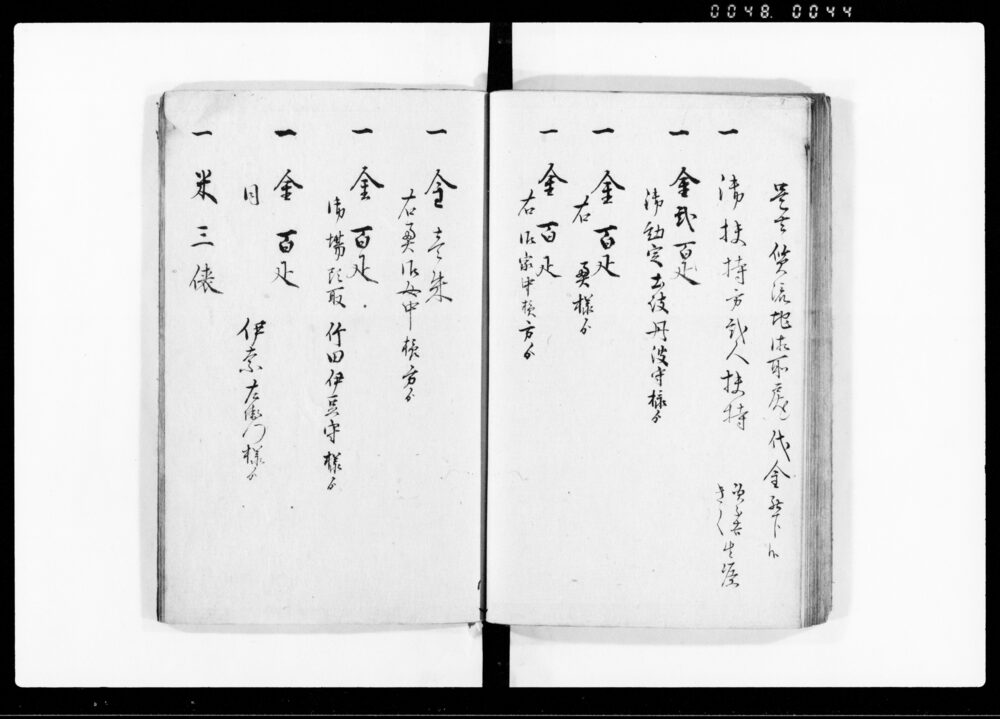 0048. 0044
是者質流地御取戻代金被下候
一 御扶持方弐人扶持
生涯
一 金弐百疋
御勘定土岐丹波守様ゟ
一 金百疋
右奥様ゟ
一 金百疋
右御家中様方ゟ
一 金壱朱
右奥御女中様方ゟ
一 金百疋
御場頭取 竹田伊豆守様ゟ
一 金百疋
同 伊奈左衛門様ゟ
一 米三俵